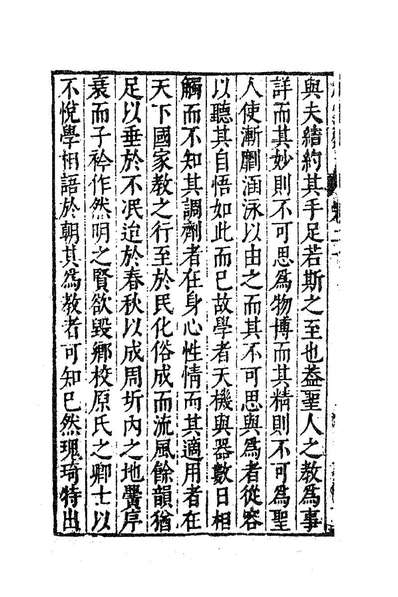 與夫綃約其手足若斯之至也葢聖人之教為事
詳而其妙則不可思為物博而其精則不可為聖
人使漸劘涵泳以由之而其不可思與為者從容
以聽其自悟如此而已故學者天機與器數日相
觸而不知其調劑者在身心性情而其適用者在
天下國家教之行至於民化俗成而流風餘韻猶
足以垂於不泯迨於春秋以成周圻內之地黌序
衰而子衿作然明之賢欲毀鄉校原氏之卿士以
不悅學相語於朝其為教者可知已然瑰琦特出